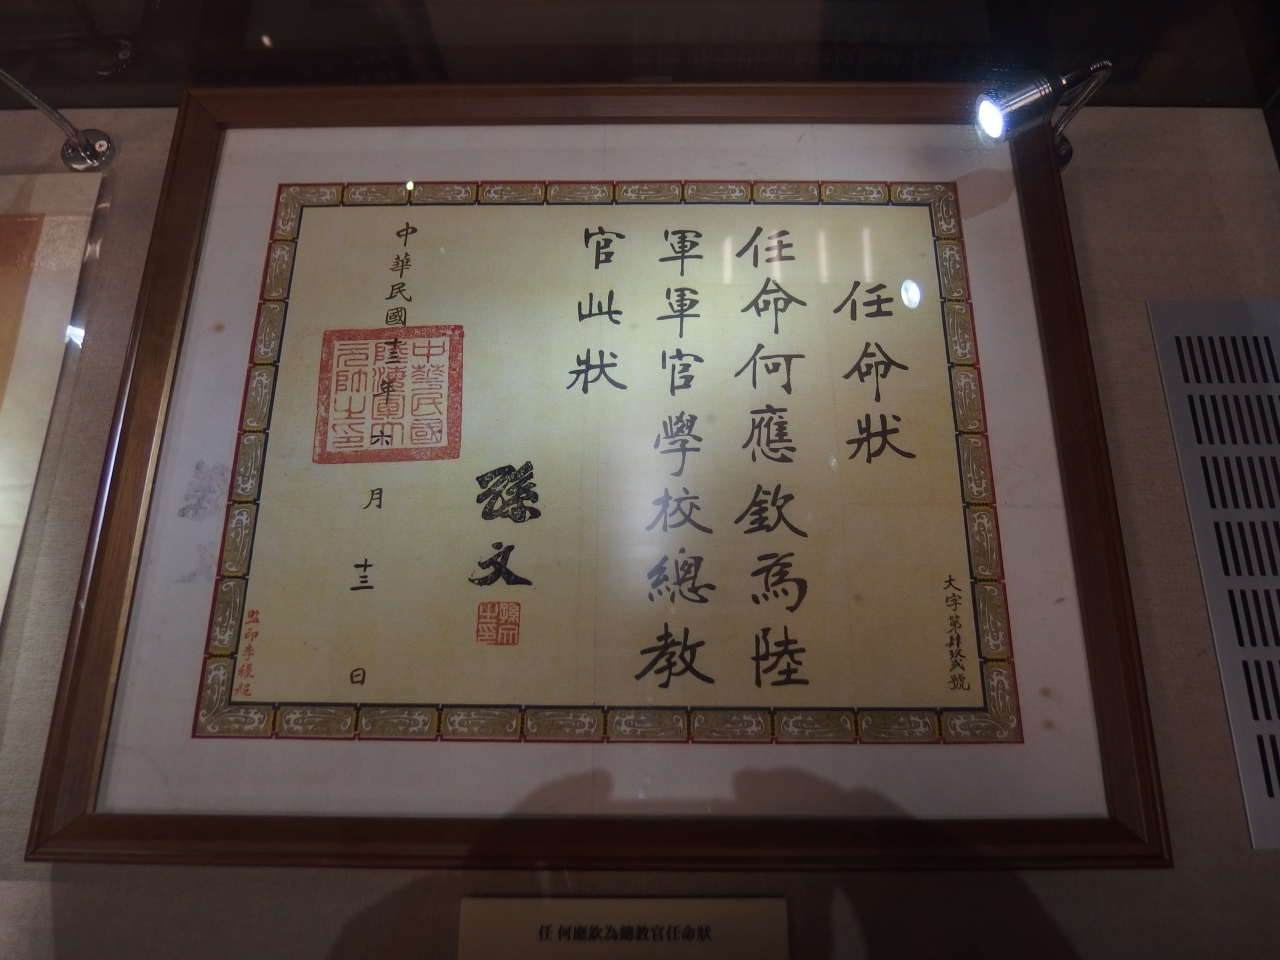 任命狀
任命何應欽為陸
軍軍官學校總教
官此狀
孫文
孫文之印
中華民國十三年六月十三日
中華民國
陸海軍大
元帥之印
大字第肆玖貳號
任 何應欽為總教官任命狀